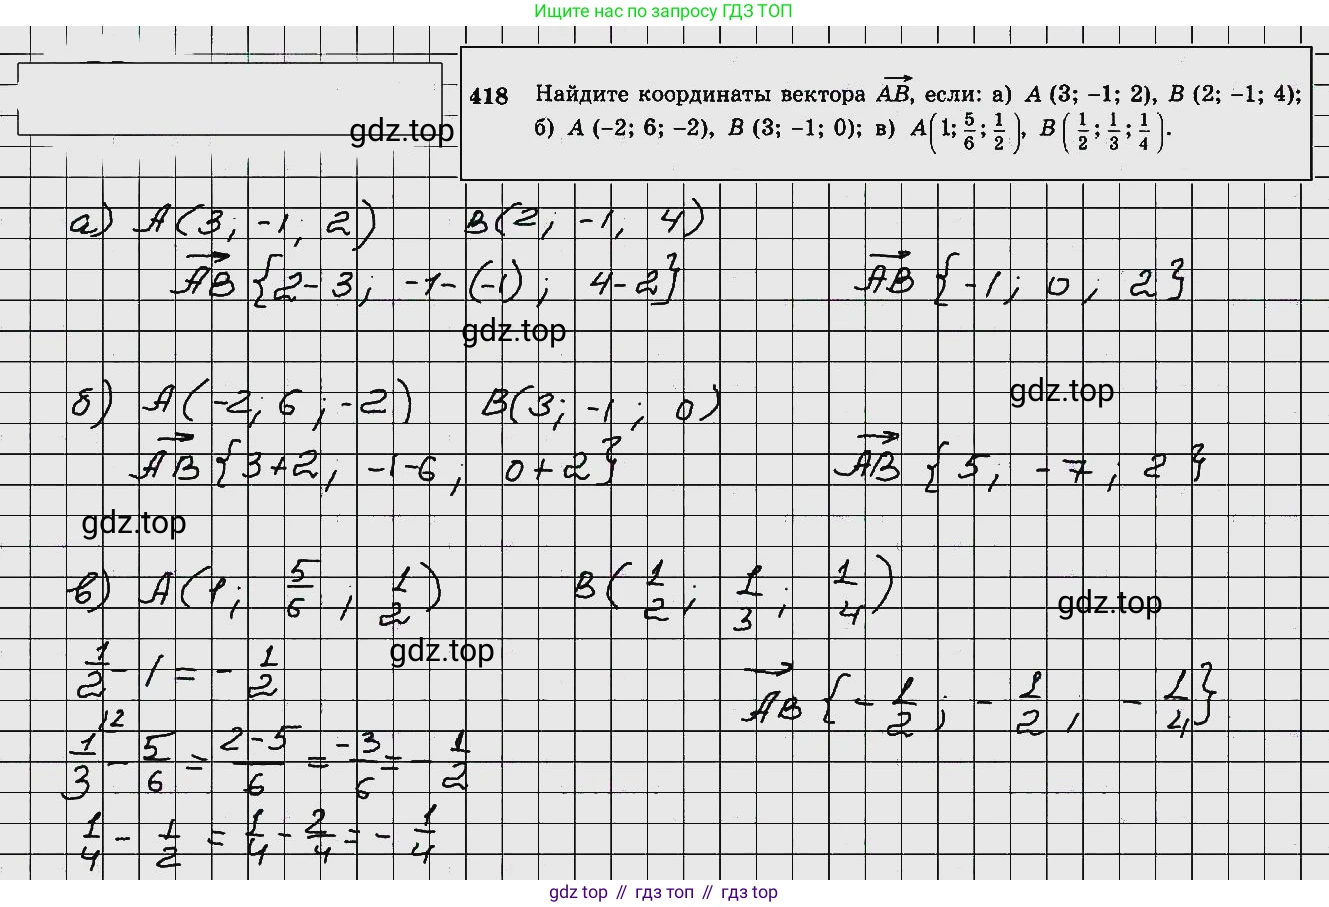 Ищите нас по запросу ГДЗ ТОП
418 Найдите координаты вектора AB, если: а) A (3; −1; 2), B (2; −1; 4);
б) A (−2; 6; −2), B (3; −1; 0); в) A(1; 5/6; 1/2), B(1/2; 1/3; 1/4).
gdz.top
а) A(3; -1; 2) B(2; -1; 4)
AB{2-3; -1-(-1); 4-2} AB{-1; 0; 2}
gdz.top
gdz.top
б) A(-2; 6; -2) B(3; -1; 0)
AB{3+2; -1-6; 0+2} AB{5; -7; 2}
gdz.top
в) A(1; 5/6; 1/2) B(1/2; 1/3; 1/4)
gdz.top
gdz.top
1/2 - 1 = - 1/2
AB{-1/2; -1/2; -1/4}
1/3 \2 - 5/6 = 2-5/6 = -3/6 = - 1/2
1/4 - 1/2 = 1/4 - 2/4 = - 1/4
gdz top // гдз топ // gdz top